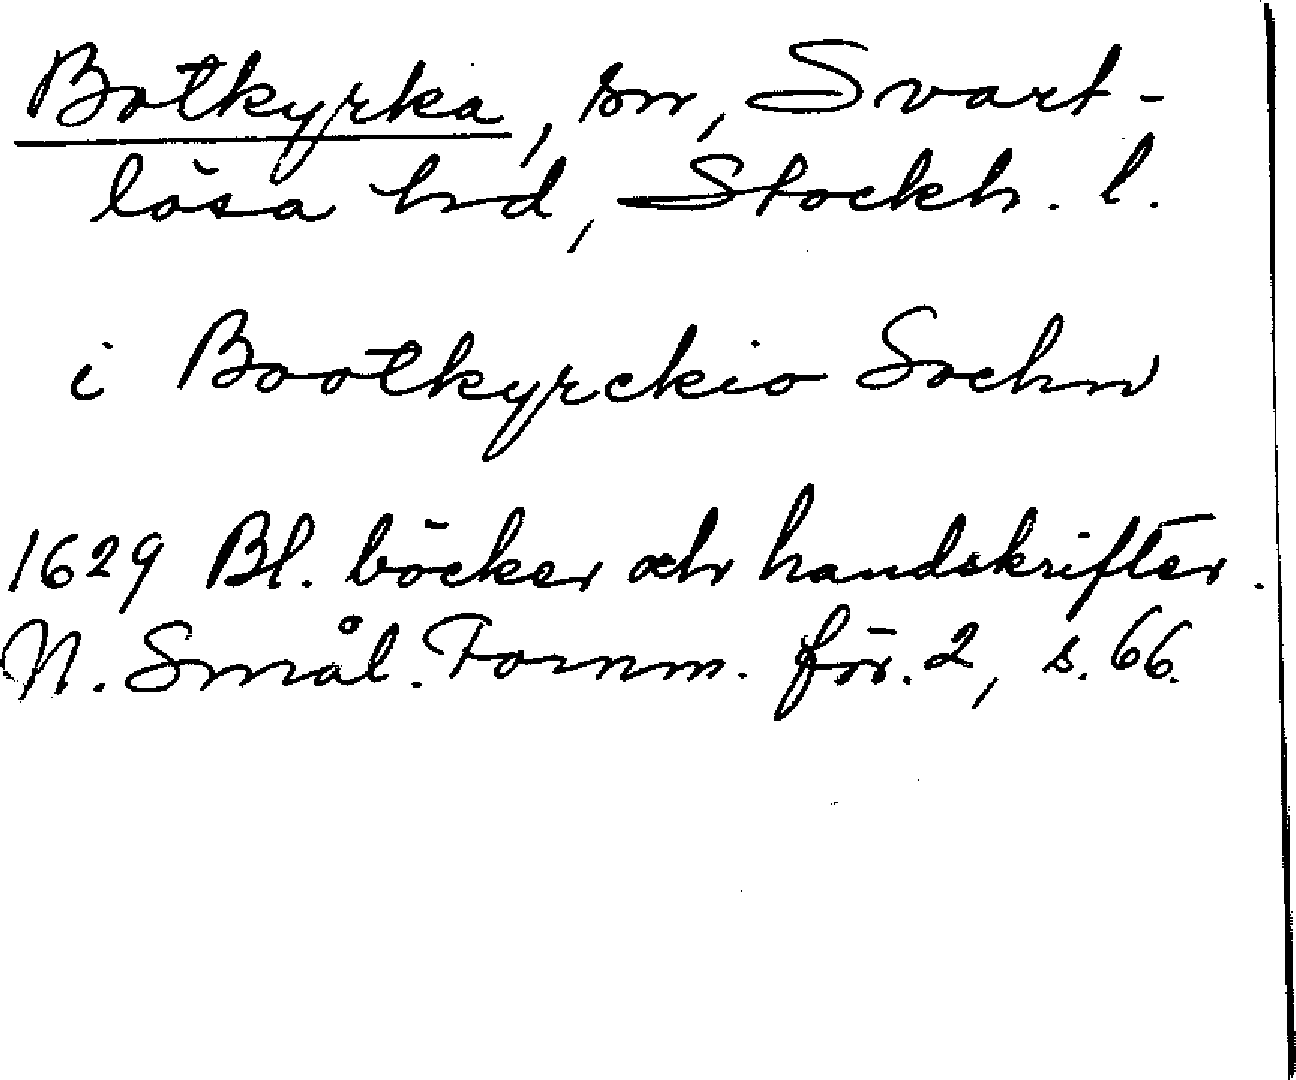 Botkyrka, sn, Svart-
lösa hd, Stockh. l.
i Bootkyrckio Sochn
1629 Bl. böcker och handskrifter.
N. Smål. Fornm. för. 2, s. 66.